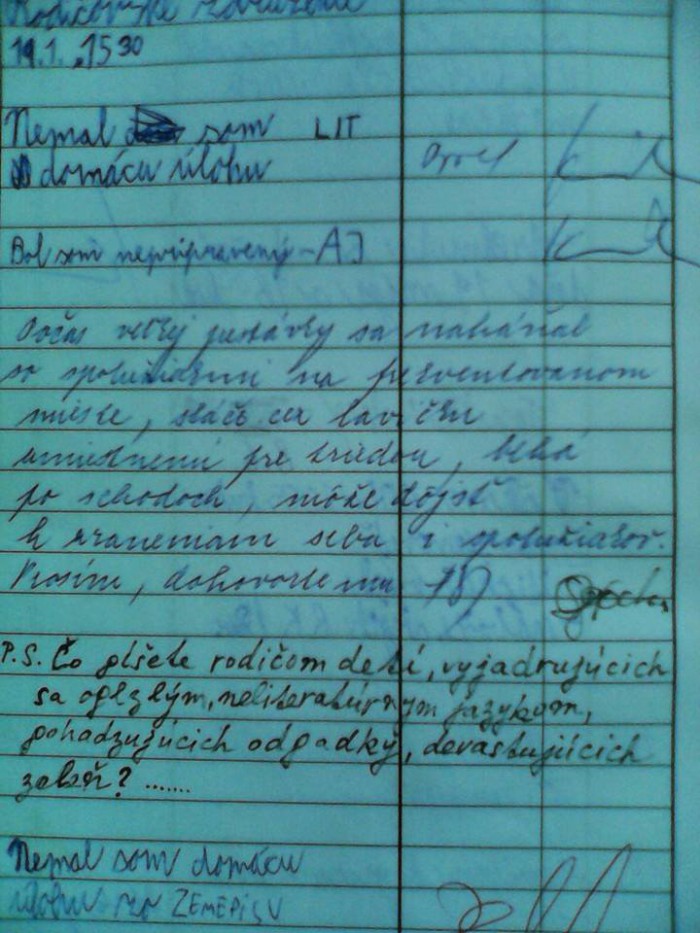 Rodičovské združenie
19.1. 15 30
Nemal som LIT
domácu úlohu
Bol som nepripravený - AJ
Počas veľkej prestávky sa naháňal
so spolužiakmi na frekventovanom
mieste, skáče cez lavičku
umiestnenú pre triedou, behá
po schodoch, môže dôjsť
k zraneniam seba i spolužiakov.
Prosím, dohovorte mu
P.S. Čo píšete rodičom detí, vyjadrujúcich
sa oplzlým, neliteratúrnym jazykom,
pohadzujúcich odpadky, devastujúcich
? .......
Nemal som domácu
úlohu zo ZEMEPISU